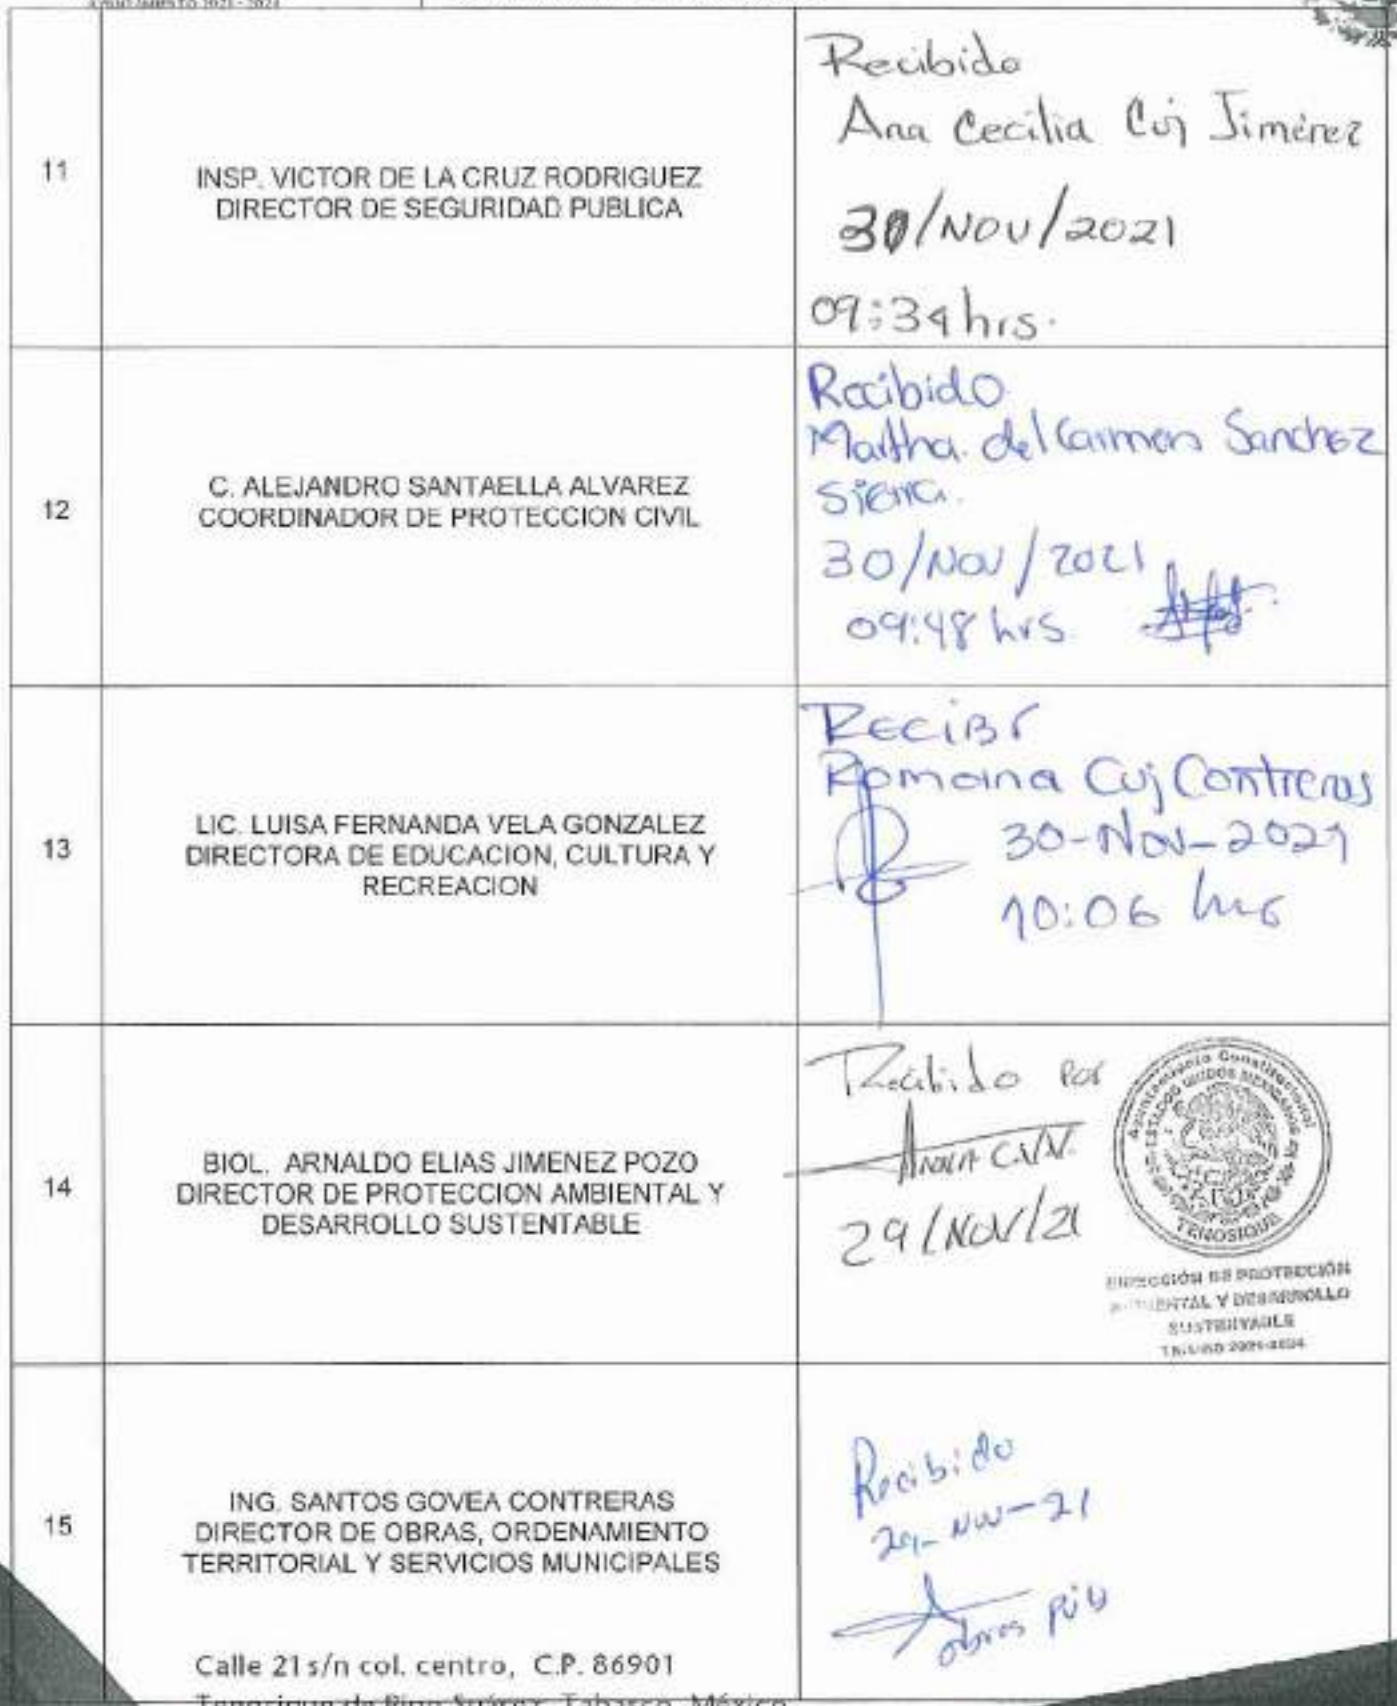 AYUNTAMIENTO 2021 - 2024
11
INSP. VICTOR DE LA CRUZ RODRIGUEZ
DIRECTOR DE SEGURIDAD PUBLICA
Recibido
Ana Cecilia Cuj Jiménez
30/NOV/2021
09:34 hrs.
12
C. ALEJANDRO SANTAELLA ALVAREZ
COORDINADOR DE PROTECCION CIVIL
Recibido
Martha del Carmen Sanchez
Sierra.
30/NOV/2021
09:48 hrs
13
LIC. LUISA FERNANDA VELA GONZALEZ
DIRECTORA DE EDUCACION, CULTURA Y
RECREACION
RECIBÍ
Romana Cuj Contreras
30-Nov-2021
10:06 hrs
14
BIOL. ARNALDO ELIAS JIMENEZ POZO
DIRECTOR DE PROTECCION AMBIENTAL Y
DESARROLLO SUSTENTABLE
Recibido por
29/NOV/21
Ayuntamiento Constitucional
ESTADOS UNIDOS MEXICANOS
TENOSIQUE
DIRECCIÓN DE PROTECCIÓN
AMBIENTAL Y DESARROLLO
SUSTENTABLE
2021-2024
15
ING. SANTOS GOVEA CONTRERAS
DIRECTOR DE OBRAS, ORDENAMIENTO
TERRITORIAL Y SERVICIOS MUNICIPALES
Recibido
29-Nov-21
obras
Calle 21 s/n col. centro, C.P. 86901
Tenosique de Pino Suárez, Tabasco, México